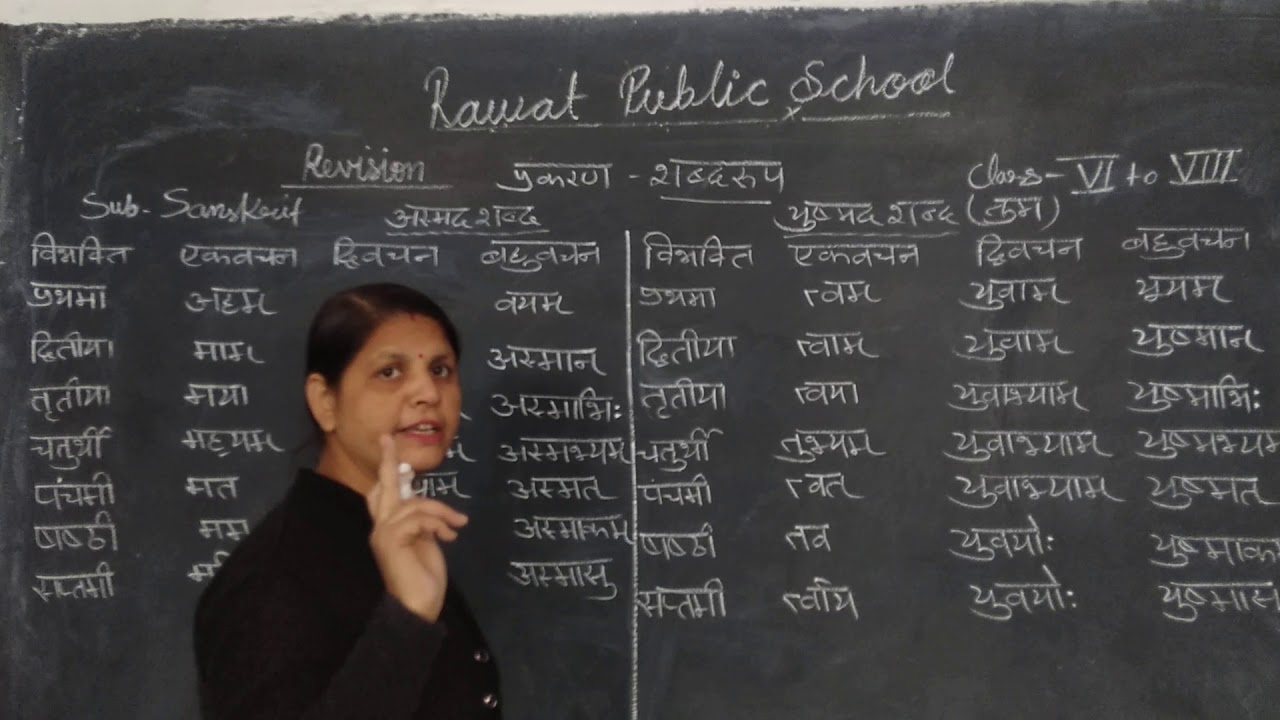 Rawat Public School
Revision प्रकरण - शब्दरूप Class - VI to VIII
Sub - Sanskrit अस्मद शब्द युष्मद शब्द (तुम)
विभक्ति एकवचन द्विवचन बहुवचन विभक्ति एकवचन द्विवचन बहुवचन
प्रथमा अहम् वयम् प्रथमा त्वम् युवाम् यूयम्
द्वितीया माम् अस्मान् द्वितीया त्वाम् युवाम् युष्मान्
तृतीया मया अस्माभिः तृतीया त्वया युवाभ्याम् युष्माभिः
चतुर्थी मह्यम् अस्मभ्यम् चतुर्थी तुभ्यम् युवाभ्याम् युष्मभ्यम
पंचमी मत याम् अस्मत् पंचमी त्वत् युवाभ्याम् युष्मत्
षष्ठी मम अस्माकम् षष्ठी तव युवयोः युष्माक
सप्तमी अस्मासु सप्तमी त्वोय युवयोः युष्मास